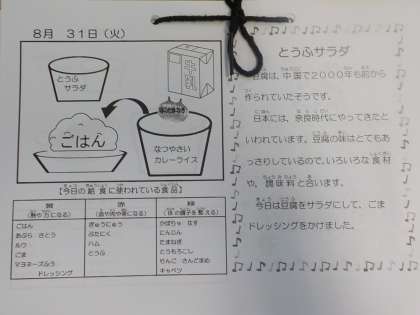 8月 31日(火)
とうふ
サラダ
ごはん
なつやさい
カレーライス
【今日の給食に使われている食品】
黄
(熱や力になる)
ごはん
あぶら さとう
ルウ
ごま
マヨネーズふう
ドレッシング
赤
(血や肉や骨になる)
ぎゅうにゅう
ぶたにく
ハム
とうふ
緑
(体の調子を整える)
かぼちゃ なす
にんじん
たまねぎ
とうもろこし
りんご さんどまめ
キャベツ
とうふサラダ
豆腐は、中国で2000年も前から
作られていたそうです。
日本には、奈良時代にやってきたと
いわれています。豆腐の味はとてもあ
っさりしているので、いろいろな食材
や、調味料と合います。
今日は豆腐をサラダにして、ごま
ドレッシングをかけました。